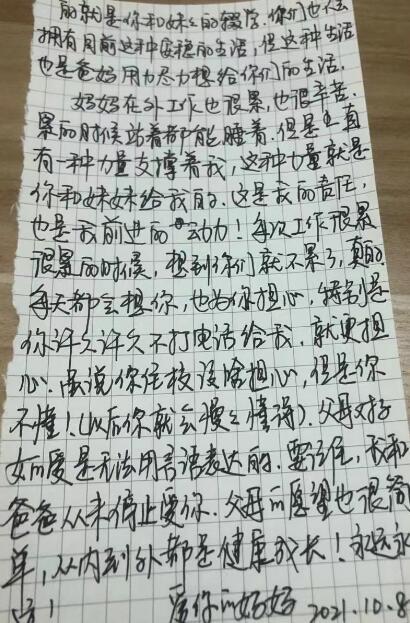 的就是你和妹妹的辍学.你们也不会
拥有目前这种安稳的生活,但这种生活
也是爸妈用力尽力想给你们的生活.
妈妈在外工作也很累,也很辛苦.
累的时候站着都能睡着.但是一直
有一种力量支撑着我,这种力量就是
你和妹妹给我的.这是我的责任,
也是我前进的动力!每次工作很累
很累的时候,想到你们就不累了,真的
每天都会想你,也为你担心,特别是
你许久许久不打电话给我.就更担
心.虽说你住校没啥担心,但是你
不懂!(以后你就会慢慢懂得).父母对孩
女的爱是无法用言语表达的.要记住,我和
爸爸从未停止爱你.父母的愿望也很简
单,从内到外都是健康成长!永远永
远!
爱你的妈妈 2021.10.8